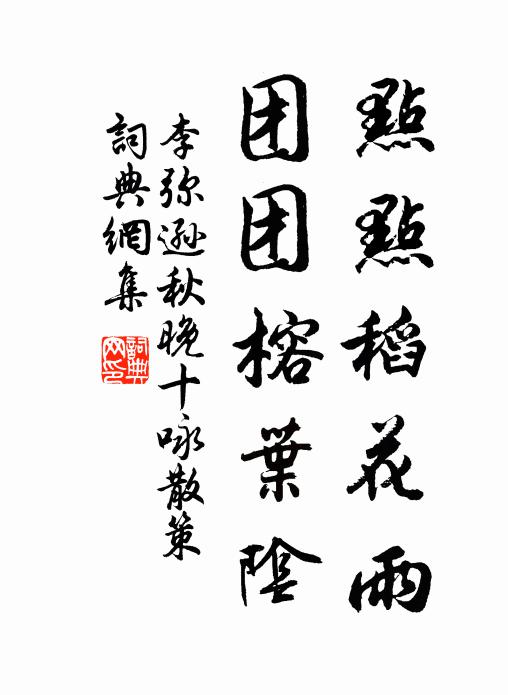 點點稻花雨
团团榕葉陰
李弥遜秋晚十咏散策
詞典網集
詞典网印